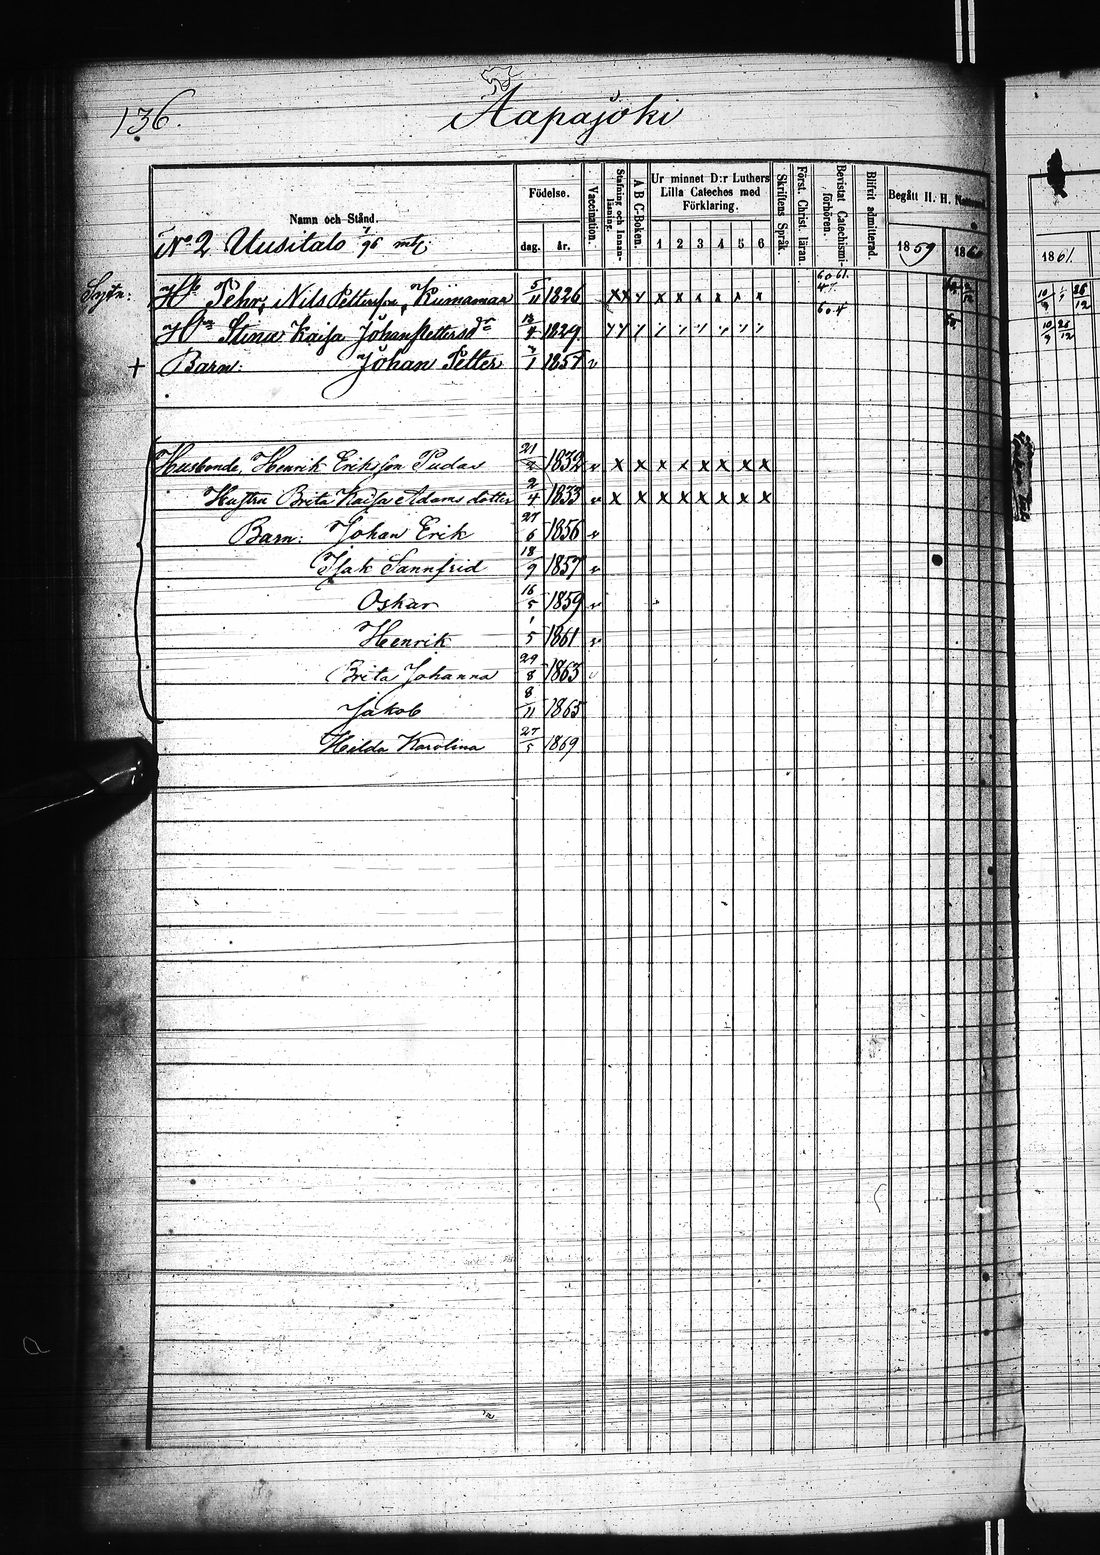 136.
Aapajoki
Namn och Stånd.
Födelse.
dag. år.
Vaccination.
Stafning och Innanläsning.
A B C-Boken.
Ur minnet D:r Luthers Lilla Cateches med Förklaring.
1 2 3 4 5 6
Skriftens Språk.
Först. Christ. läran.
Bevistat Catechismi-förhören.
Blifvit admitterad.
Begått H. H.
1859
1861
No 2 Uusitalo
Pehr, Nils Pettersson 5/11 1826 x x x x x x x x x
Stina Kaisa Johan Pettersdr 1829
+ Barn: Johan Petter 1857 v
Husbonde, Henrik Eriksson Pudas 21 1832 v x x x x x x x x
Hustru Brita Kaisa Adamsdotter 2/4 1833 v x x x x x x x x
Barn: Johan Erik 27/6 1856 v
Isak Sannfrid 18/9 1857 v
Oskar 16/5 1859 v
Henrik 1/5 1861 v
Brita Johanna 29/8 1863
Jakob 8/11 1865
Hilda Karolina 27/5 1869